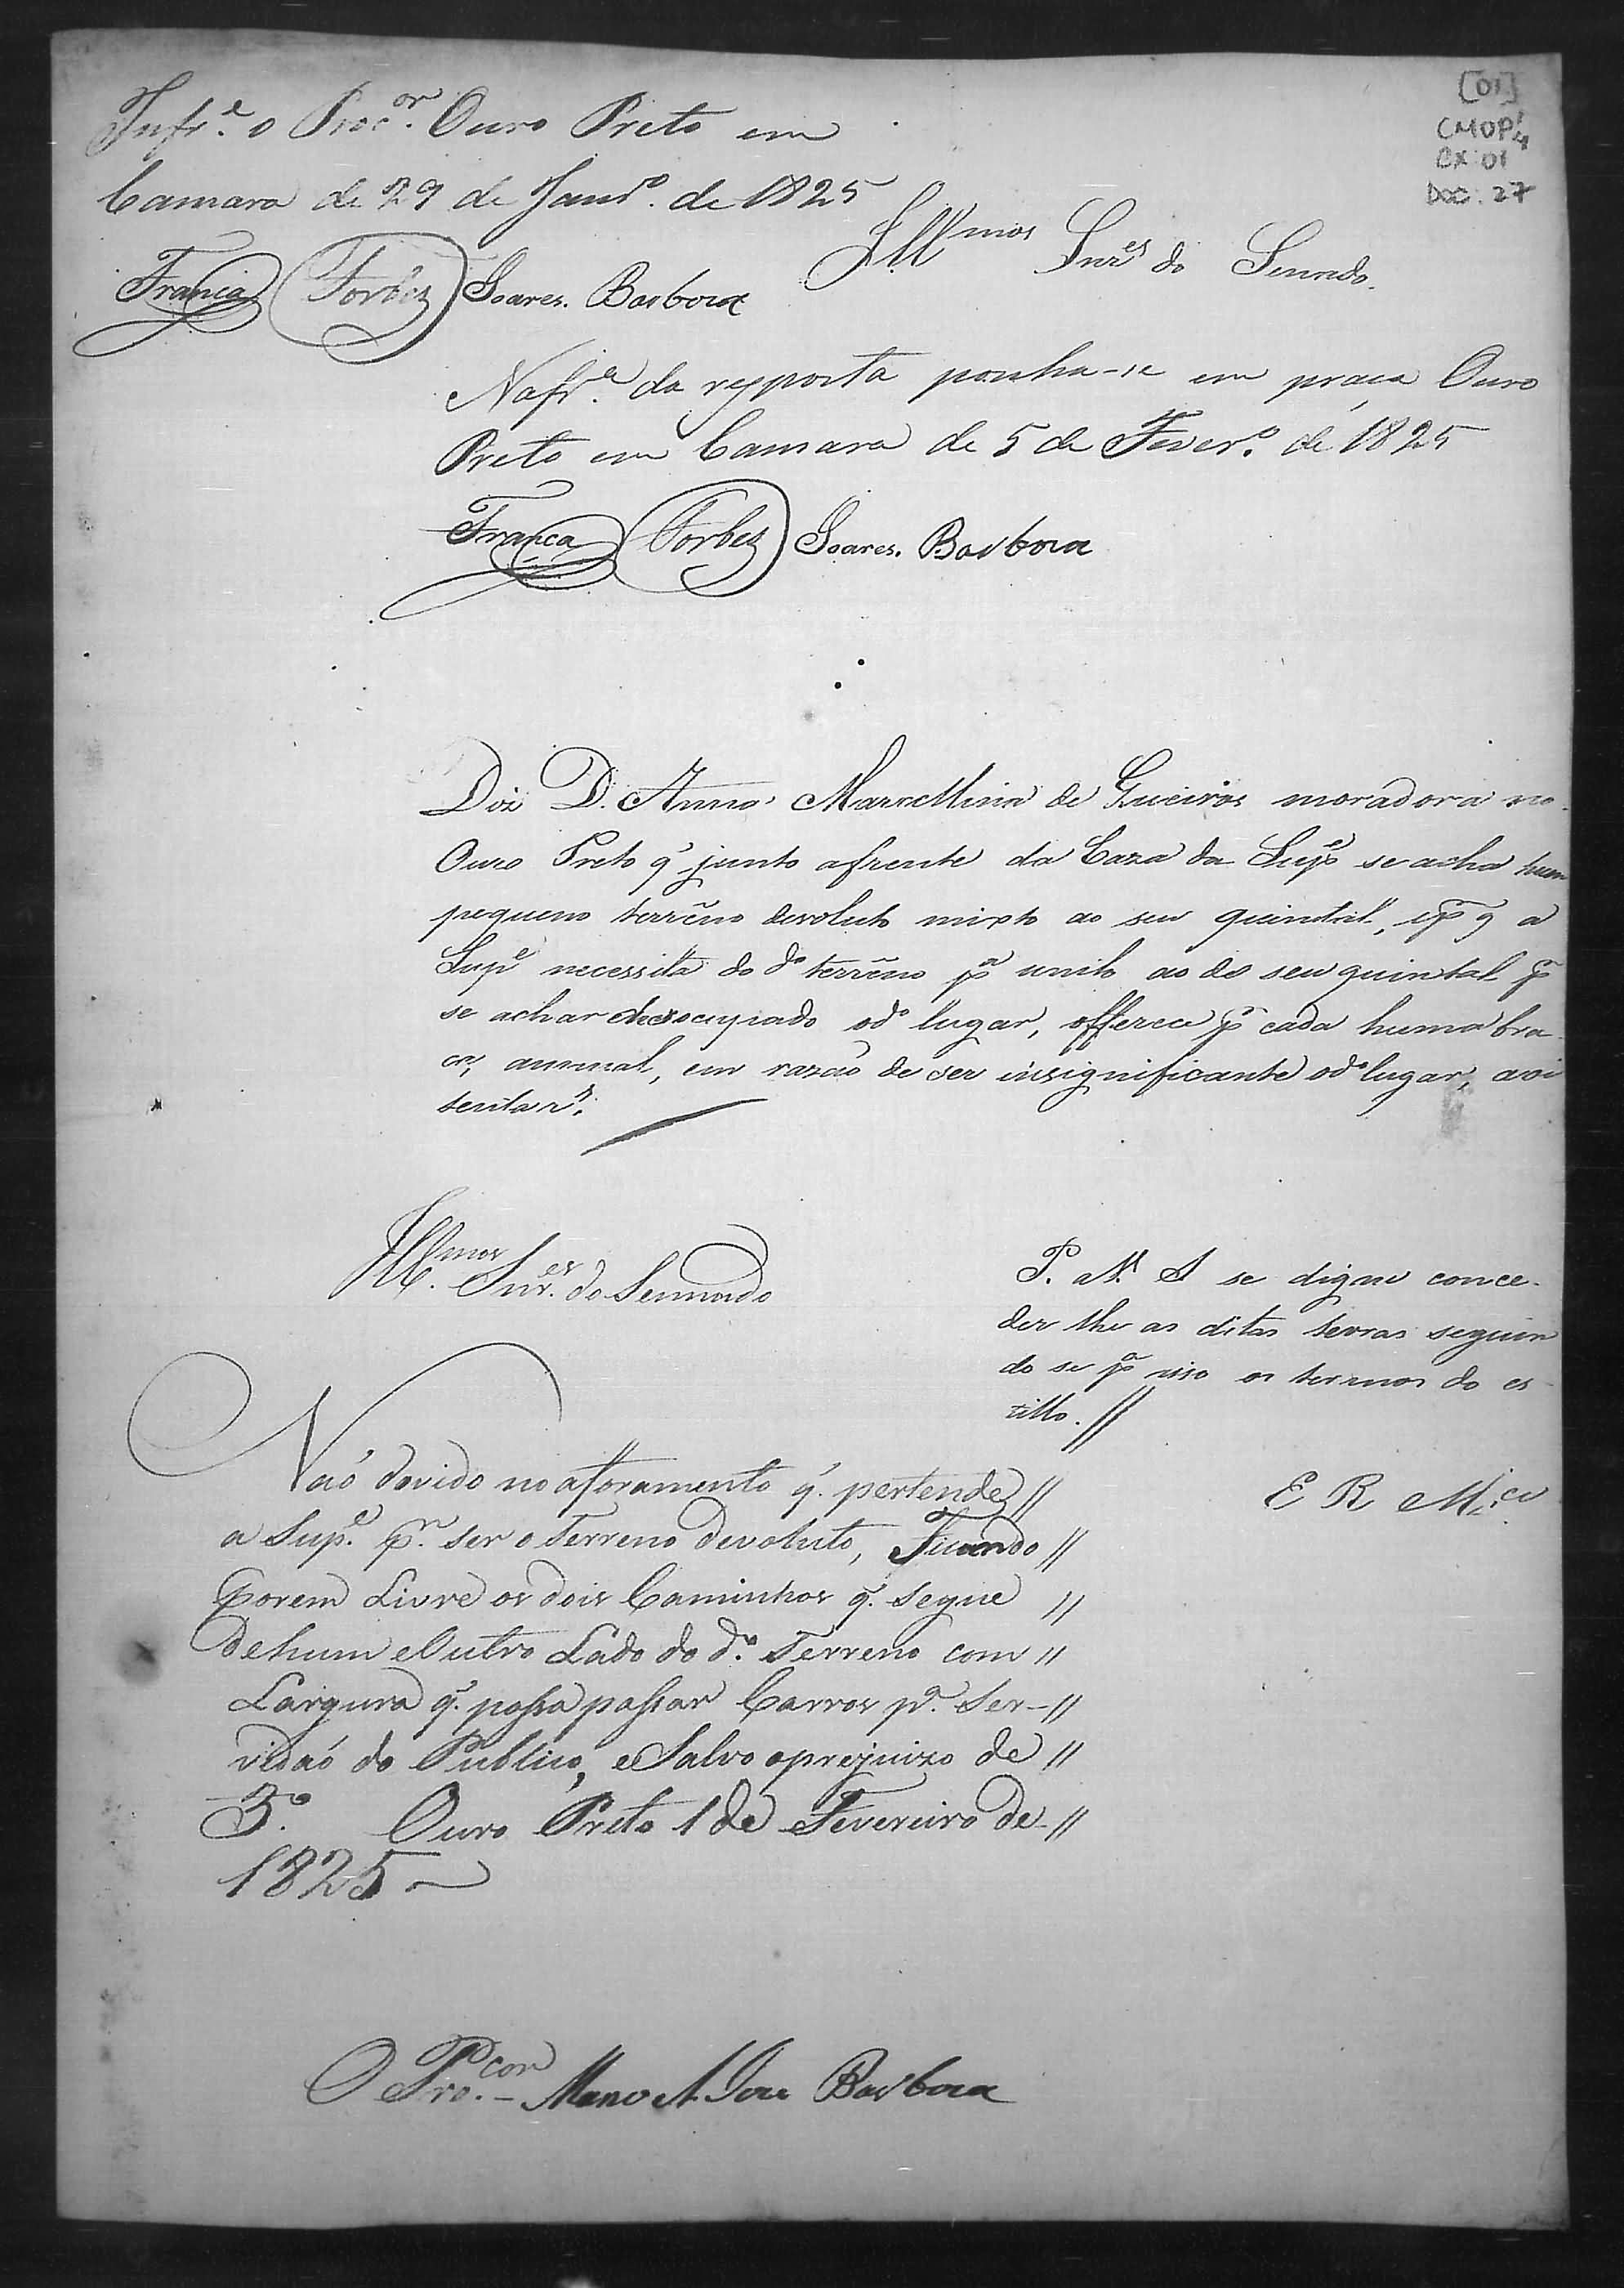 [01]
CMOP
CX: 01
DOC: 27
Infr.e o Proc.or Ouro Preto em
Camara de 29 de Janr.o de 1825
França Forbes Soares. Barboza
Ill.mos Snr.es do Senado.
Na fr.e da resposta ponha-se em praça Ouro
Preto em Camara de 5 de Fever.o de 1825
França Forbes Soares. Barboza
Diz D. Anna Marcellina de moradora no
Ouro Preto q' junto afrente da Caza da Sup.e se acha hum
pequeno terrêno devoluto mixto ao seu quintal, q a
Sup.e necessita do d.o terrêno p.a unilo ao do seu quintal p.r
se achar desocupado od.o lugar, offerece p.r cada huma bra-
ça, annual, em razaõ de ser insignificante od.o lugar, a oi
tenta r.s
P. a V. S se digne conce-
der lhe as ditas terras seguin
do se p.a isso os termos do es-
tillo. //
E R M.ce
Ill.mos Snr.es do Sennado
Naõ duvido no aforamento q'. pertende //
a Sup.e p.r ser o Terreno devoluto, Ficando //
porem Livre os dois Caminhos q'. segue //
dehum eOutro Lado do d.o Terreno com //
Largura q'. possa passar Carros p.a Ser- //
vidaõ do Publico, eSalvo oprejuizo de //
3.o Ouro Preto 1 de Fevereiro de //
1825
O Pro.cor - Manoel Jose Barboza